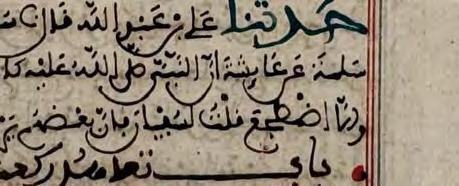 حدثنا علي بن عبد الله قال
سلمة عن عايشة ان النبي صلى الله عليه كا
والا اضطجع قلت لسفيان فان بعضهم ير
باب